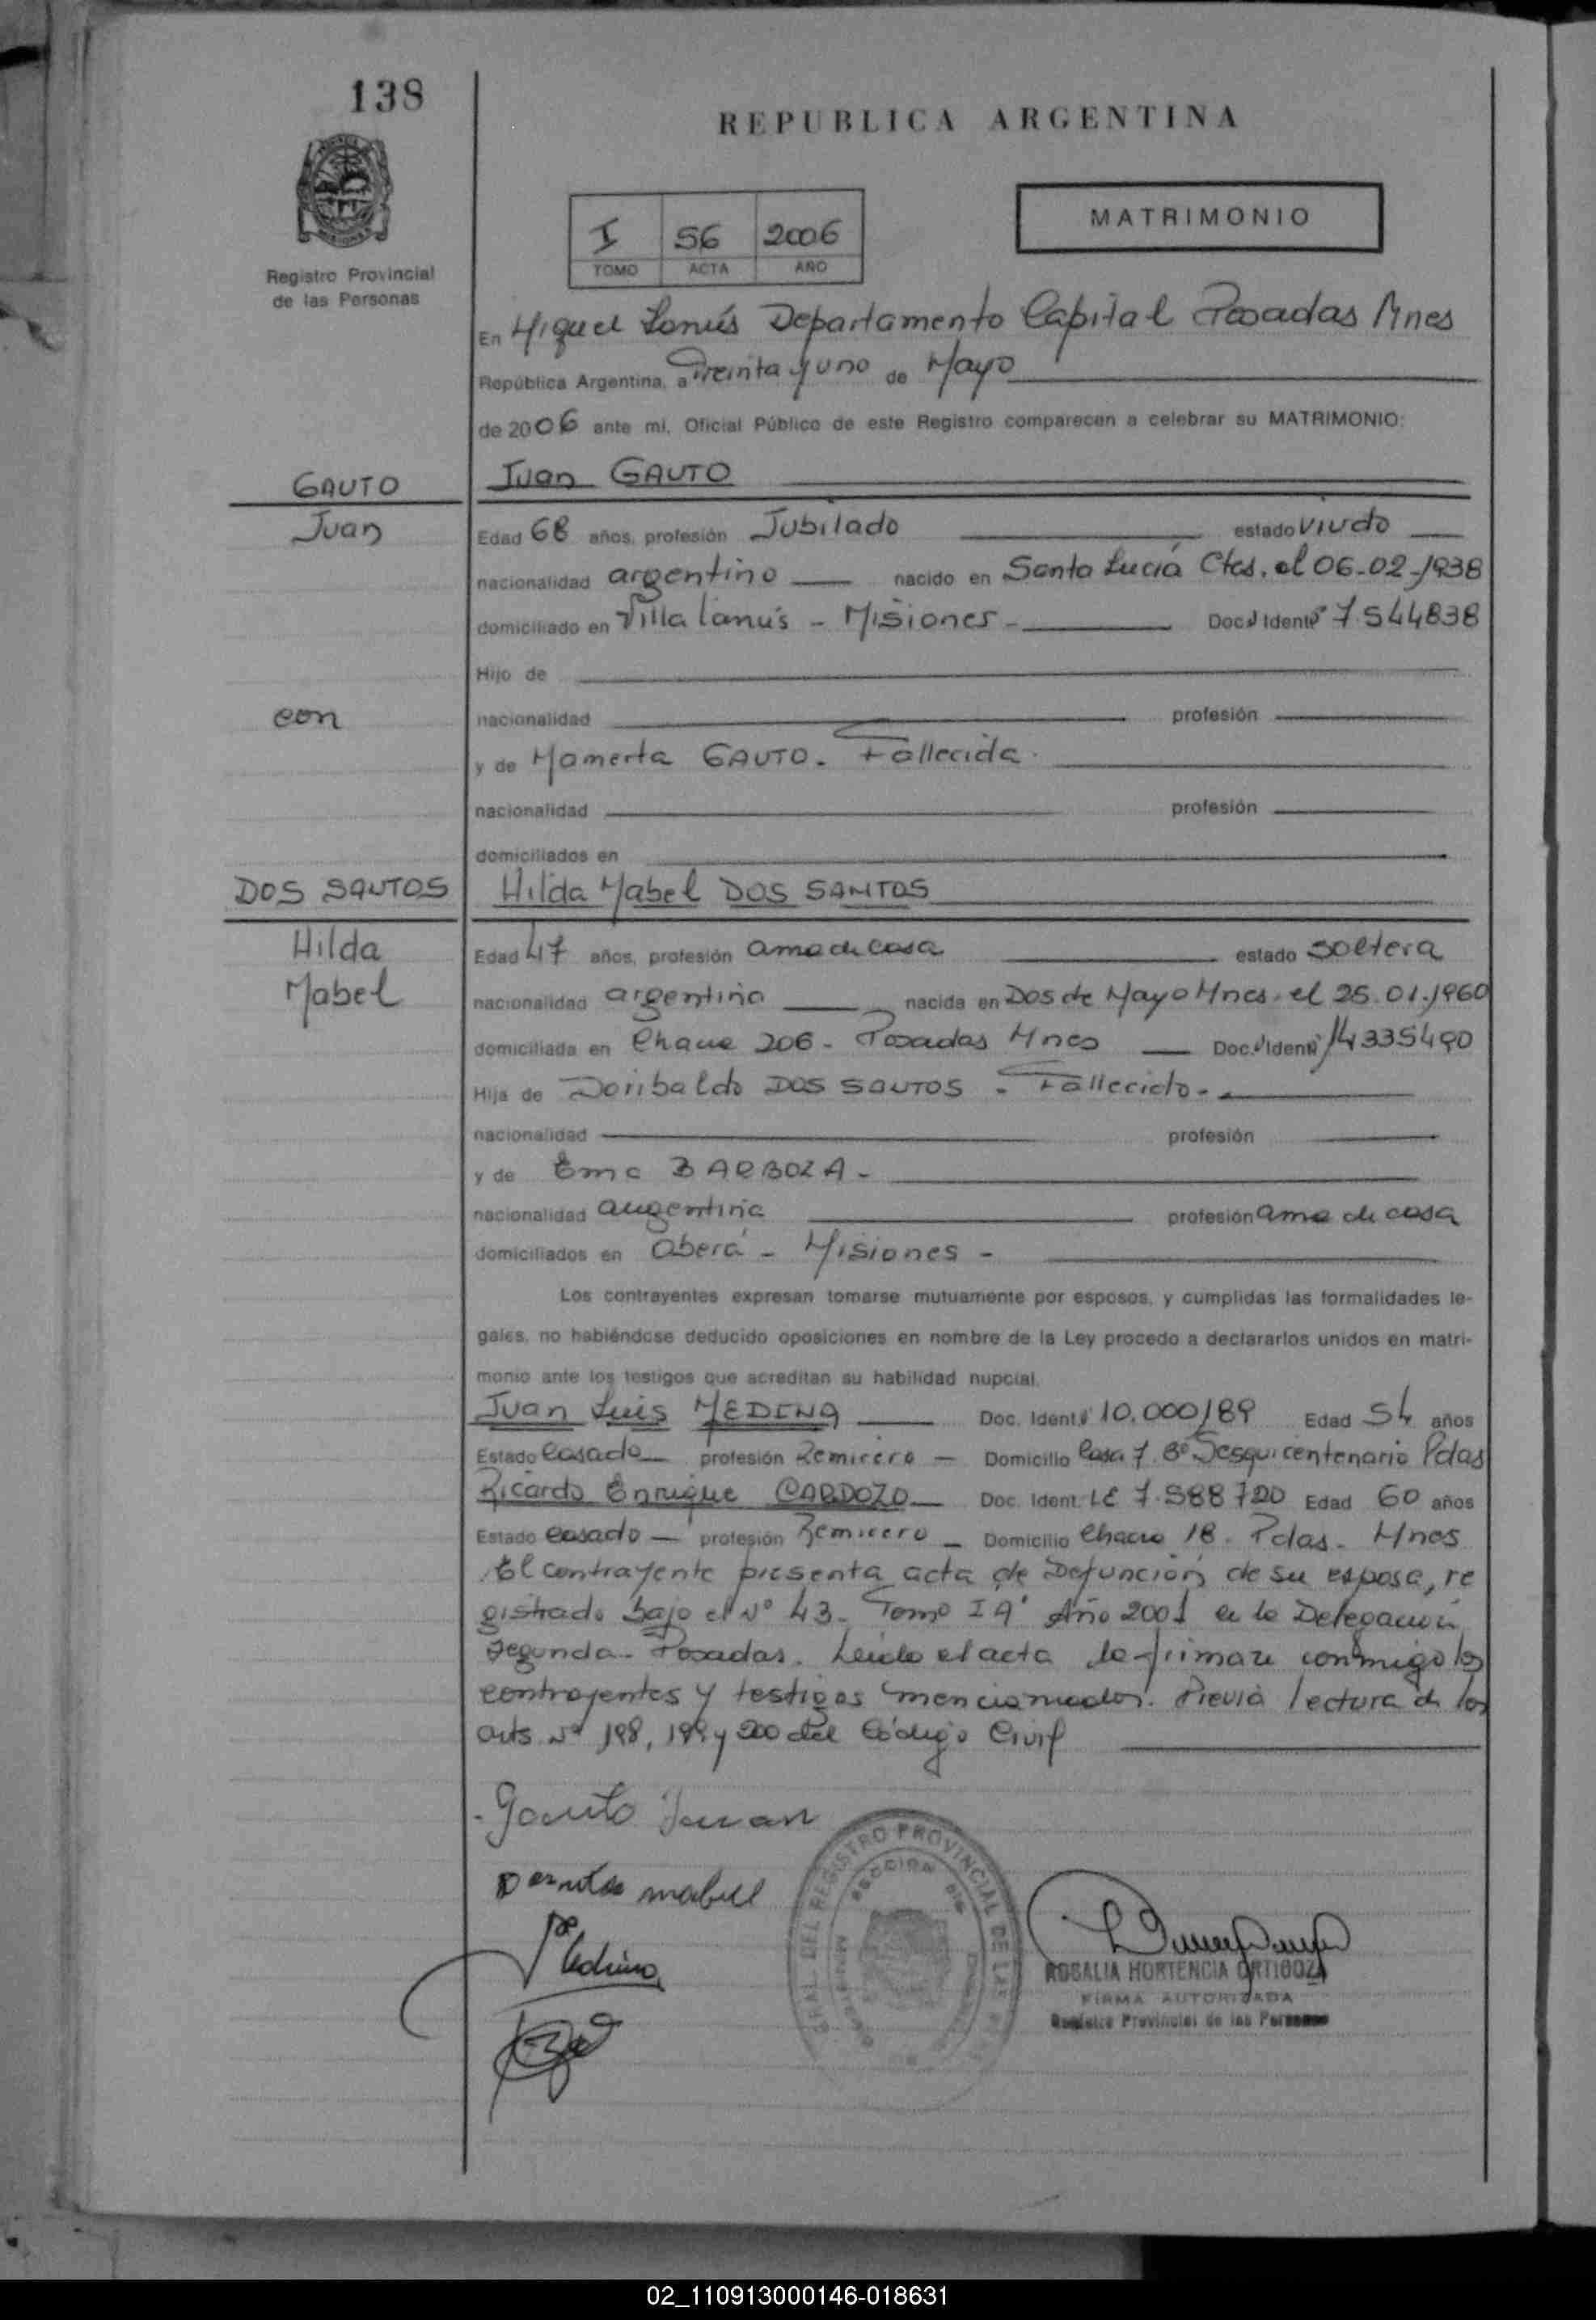 138
REPUBLICA ARGENTINA
I 56 2006
TOMO ACTA AÑO
MATRIMONIO
Registro Provincial
de las Personas
En Miguel Lanús Departamento Capital Posadas Mnes
República Argentina, a Treinta y uno de Mayo
de 2006 ante mi, Oficial Público de este Registro comparecen a celebrar su MATRIMONIO:
GAUTO
Juan GAUTO
Juan
Edad 68 años, profesión Jubilado estado viudo
nacionalidad argentino nacido en Santa Lucía Ctes. el 06-02-1938
domiciliado en Villa Lanús - Misiones - Doc. Ident. 7.544838
Hijo de
con
nacionalidad profesión
y de Mamerta GAUTO. Fallecida.
nacionalidad profesión
domiciliados en
DOS SANTOS
Hilda Mabel DOS SANTOS
Hilda
Mabel
Edad 47 años, profesión ama de casa estado soltera
nacionalidad argentina nacida en Dos de Mayo Mnes. el 25.01.1960
domiciliada en 206 - Posadas Mnes Doc. Ident. 14335490
Hija de Doribaldo DOS SANTOS - Fallecido.-
nacionalidad profesión
y de Ema BARBOZA -
nacionalidad argentina profesión ama de casa
domiciliados en Oberá - Misiones -
Los contrayentes expresan tomarse mutuamente por esposos, y cumplidas las formalidades le-
gales, no habiéndose deducido oposiciones en nombre de la Ley procedo a declararlos unidos en matri-
monio ante los testigos que acreditan su habilidad nupcial.
Juan Luis MEDINA Doc. Ident. 10.000189 Edad 54 años
Estado casado profesión Remicero - Domicilio Casa 7. Bº Sesquicentenario Pdas
Ricardo Enrique CARDOZO Doc. Ident. LE 7.588720 Edad 60 años
Estado casado - profesión Remicero - Domicilio Chacra 18. Pdas. Mnes
El contrayente presenta acta de Defunción de su esposa, re
gistrada bajo el Nº 43. Tomo I A' Año 2001 en la Delegación
Segunda - Posadas. Leída el acta la firman conmigo los
contrayentes y testigos mencionados. Previa lectura de los
arts. Nº 198, 199 y 200 del Código Civil
Gauto Juan
mabel
Medina
REGISTRO PROVINCIAL DE LAS
ROSALIA HORTENCIA ORTIGOZA
FIRMA AUTORIZADA
Registro Provincial de las Personas
02_110913000146-018631